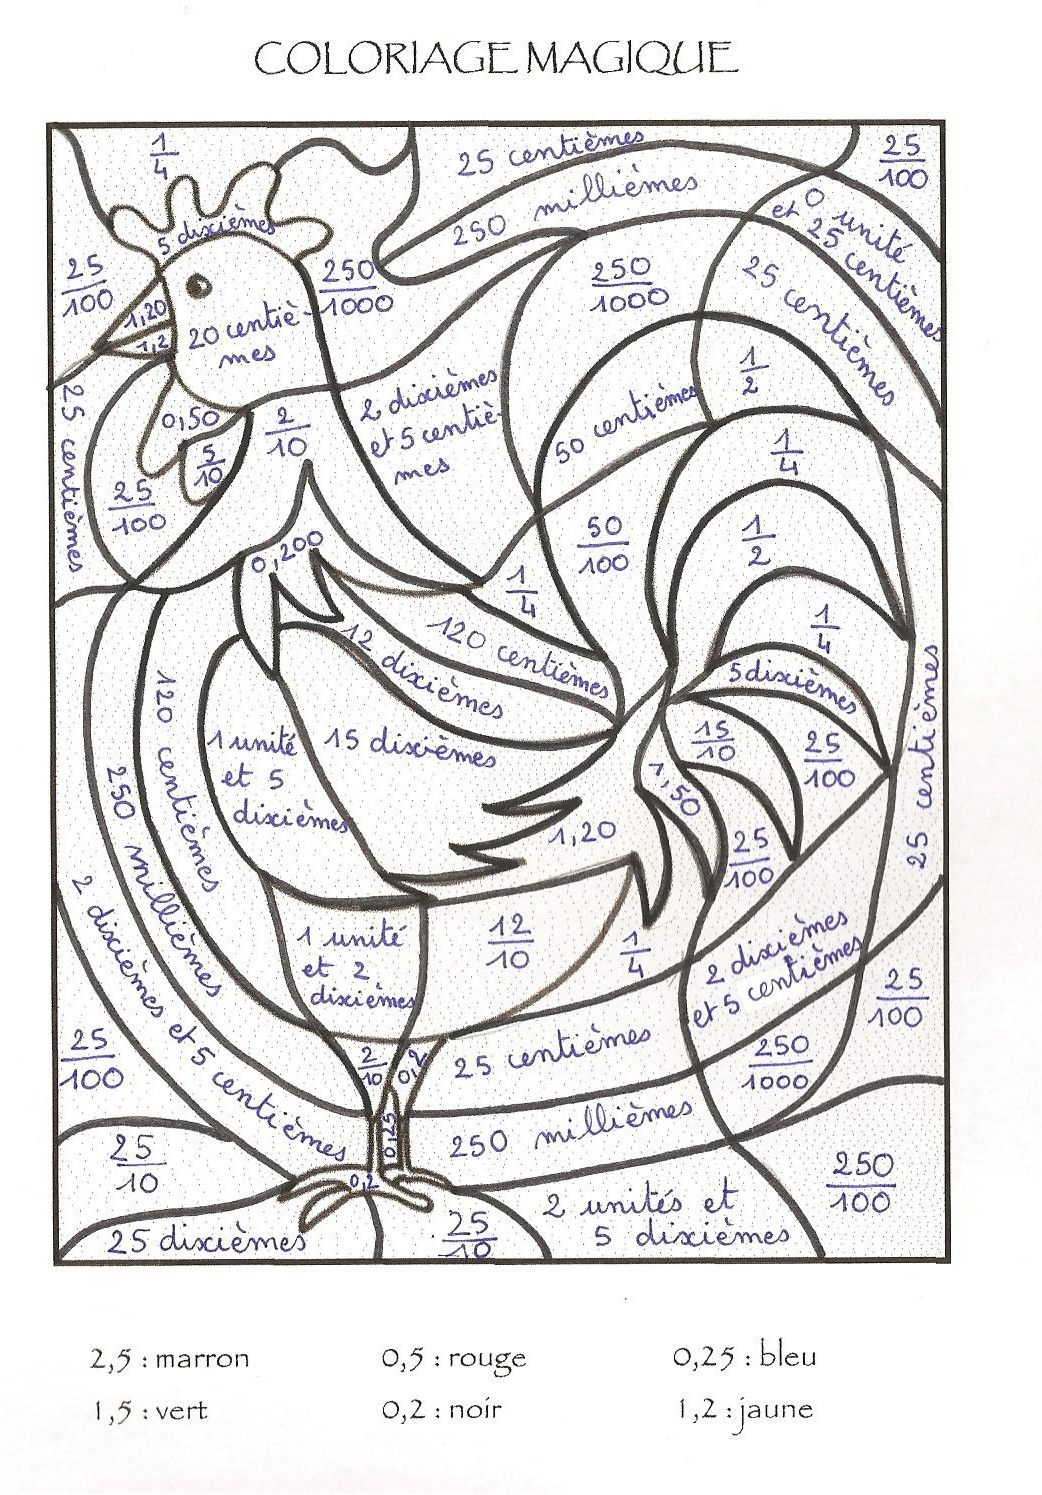 COLORIAGE MAGIQUE
1/4
25 centièmes
25/100
250 millièmes
0 unité
et 25
centièmes
5 dixièmes
25/100
250/1000
250/1000
25 centièmes
1,20
1,2
20 centiè-
mes
1/2
25 centièmes
2 dixièmes
et 5 centiè-
mes
50 centièmes
0,50
2/10
1/4
5/10
25/100
50/100
1/2
0,200
1/4
1/4
120 centièmes
12 dixièmes
5 dixièmes
120 centièmes
1 unité
et 5
dixièmes
15 dixièmes
15/10
25/100
25 centièmes
250 millièmes
1,50
1,20
25/100
2 dixièmes et 5 centièmes
1 unité
et 2
dixièmes
12/10
1/4
2 dixièmes
et 5 centièmes
25/100
25/100
2/10
0,2
25 centièmes
250/1000
0,125
250 millièmes
25/10
0,2
250/100
2 unités et
5 dixièmes
25 dixièmes
25/10
2,5 : marron
0,5 : rouge
0,25 : bleu
1,5 : vert
0,2 : noir
1,2 : jaune